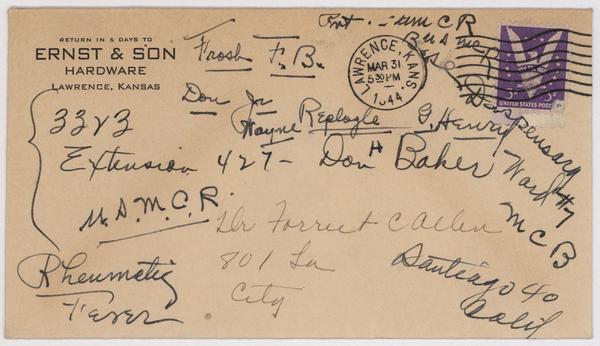 RETURN IN 5 DAYS TO
ERNST & SON
HARDWARE
LAWRENCE, KANSAS
Frosh F.B.
LAWRENCE, KANS.
MAR 31
5 30 PM
1944
3¢ 3¢
UNITED STATES POST
Don Jr
Wayne Replogle G. Henry
3323
Extension 427- Don H Baker
U.S.M.C.R.
Rheumatic
Fever
Dr Forrest C Allen
801 La
City
Pvt. USMCR
Dispensary
Ward #7
MCB
Santiago 40
Calif